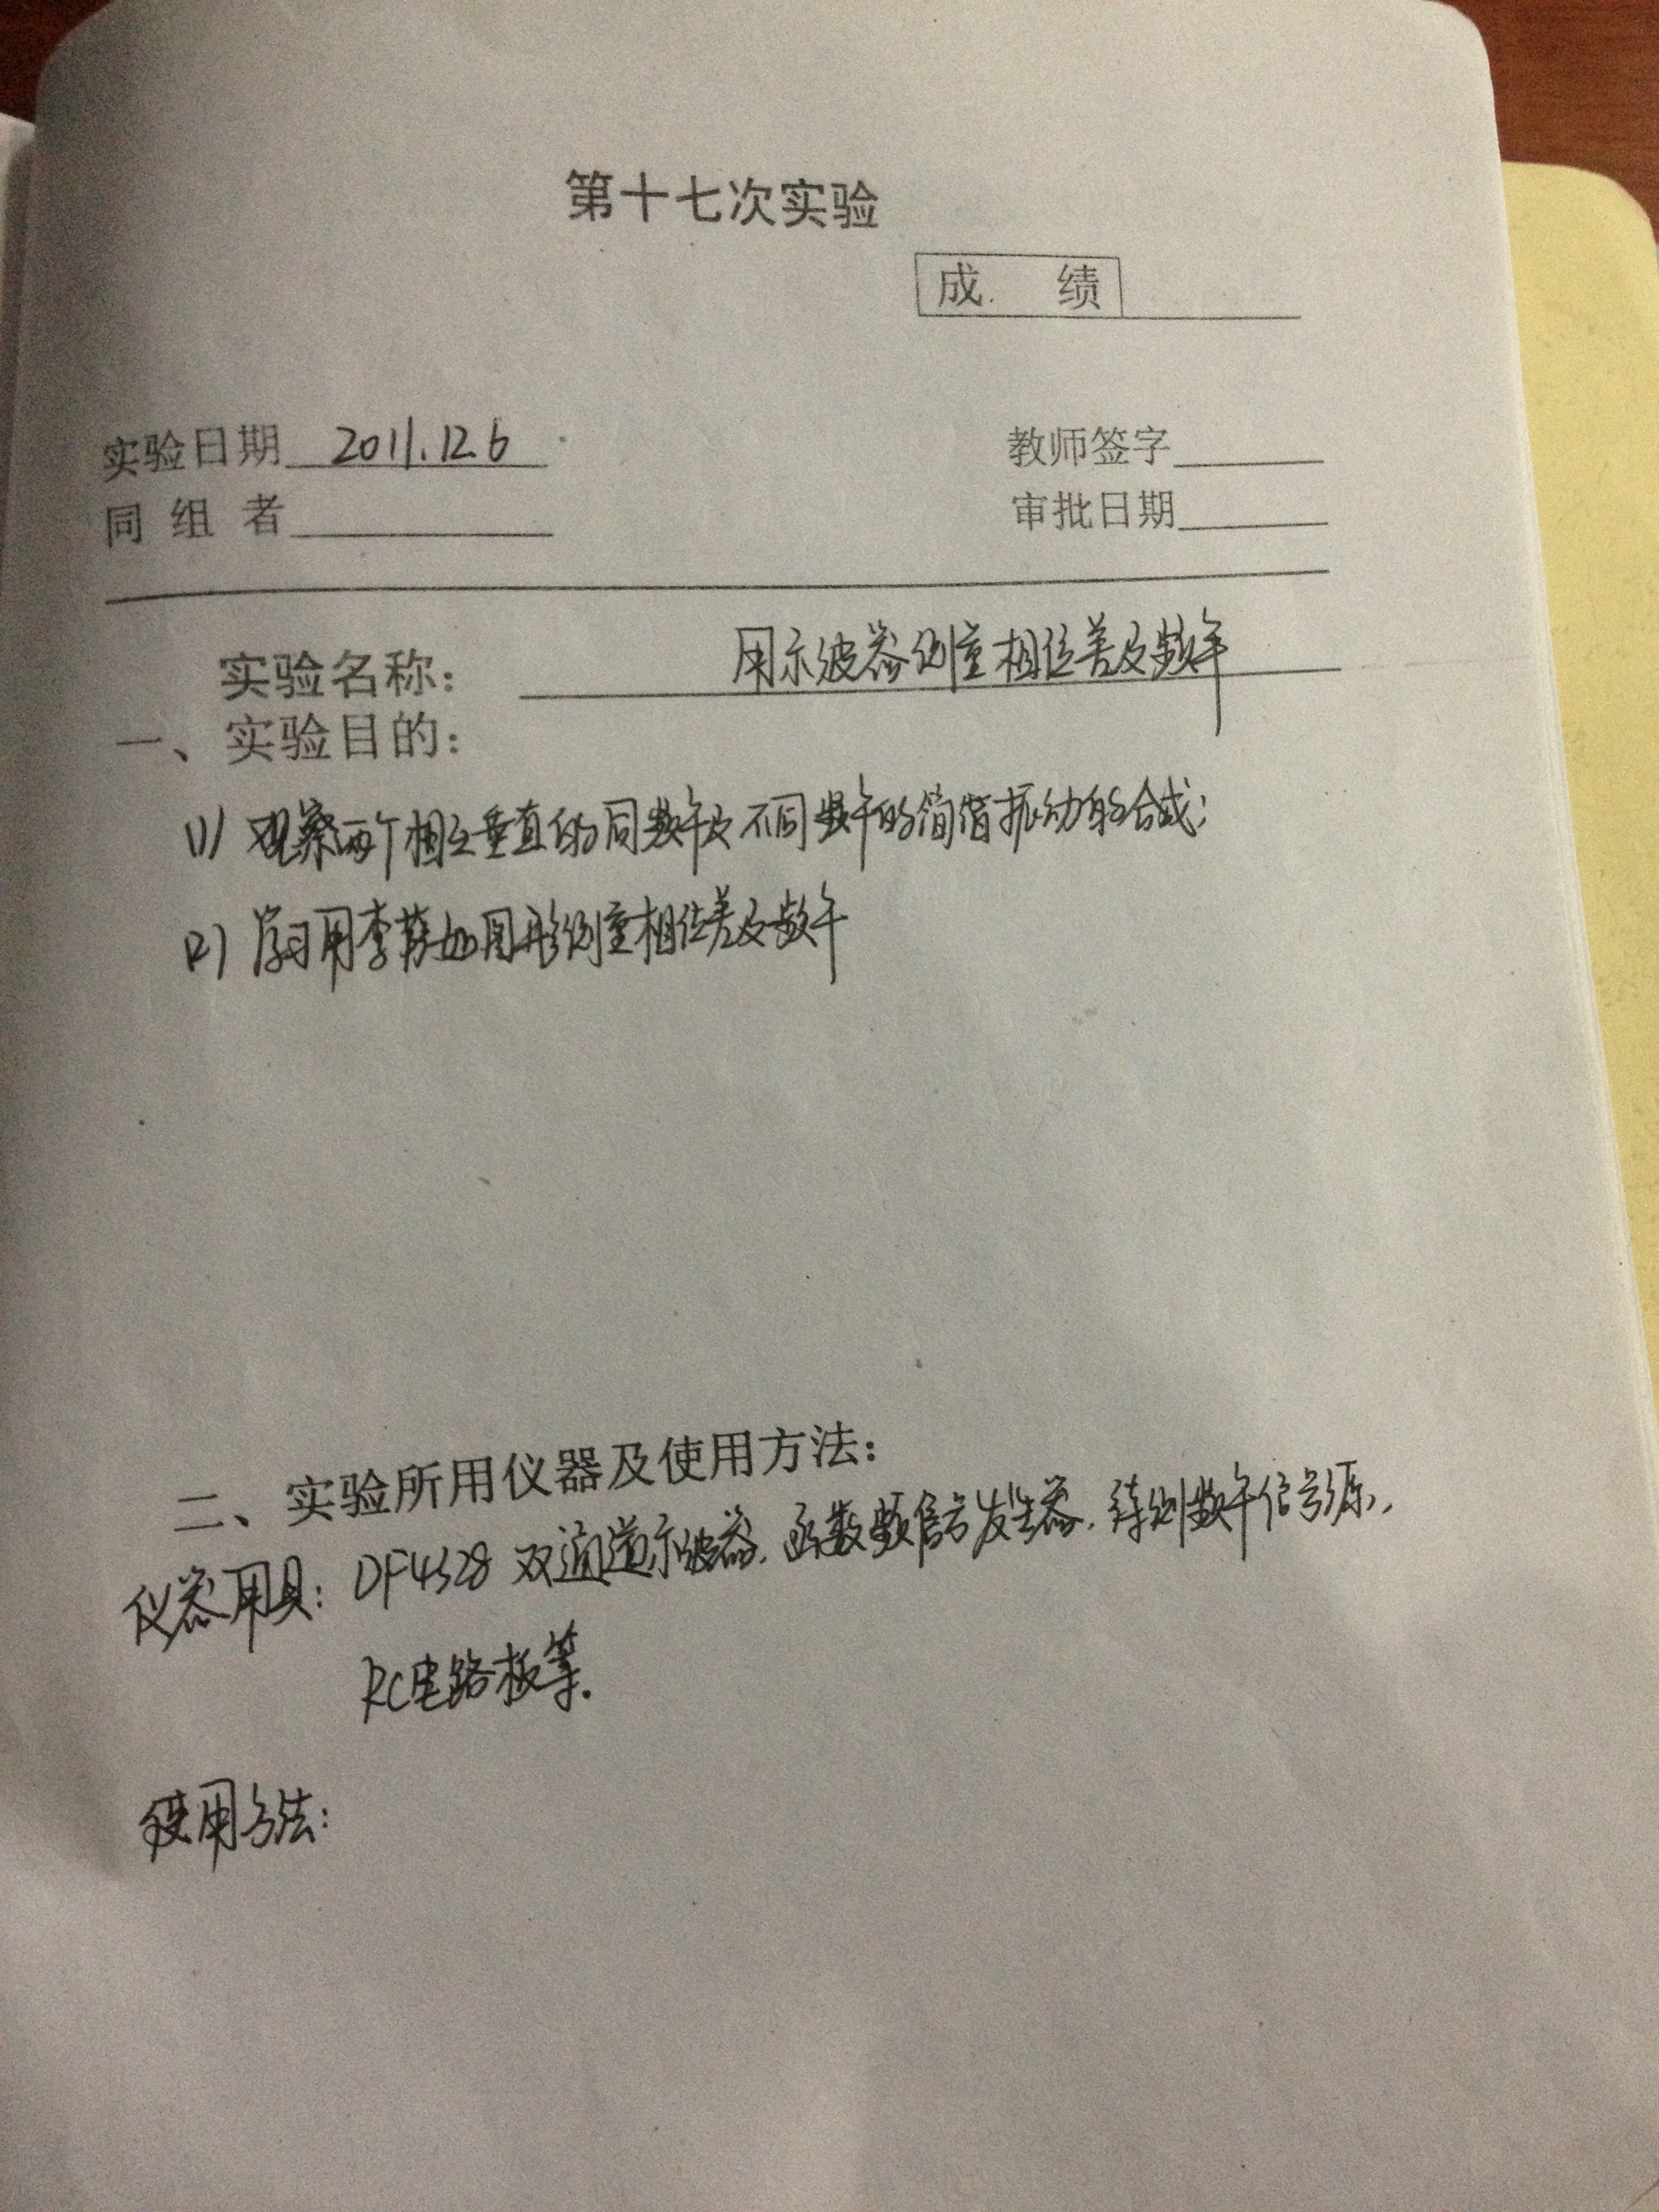 第十七次实验
成 绩
实验日期 2011.12.6
教师签字
同组者
审批日期
实验名称: 用示波器测量相位差及频率
一、实验目的:
(1) 观察两个相互垂直的同频率及不同频率的简谐振动的合成;
(2) 学习用李萨如图形测量相位差及频率
二、实验所用仪器及使用方法:
仪器用具: DF4328 双通道示波器. 函数频信号发生器. 待测频率信号源、
RC电路板等.
使用方法: